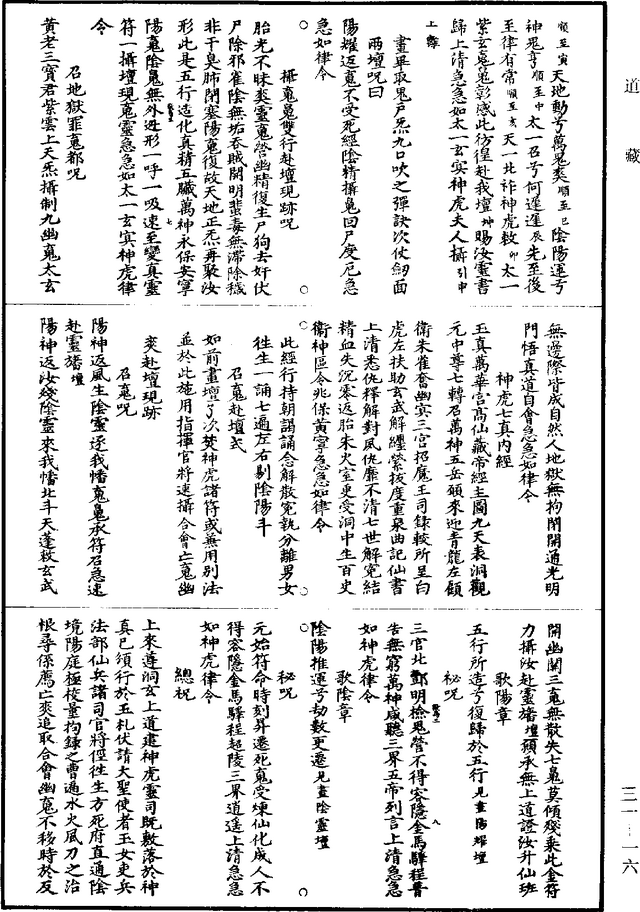 道藏
順至寅天地動兮萬鬼奔順至巳陰陽運兮
神鬼亨順至申太一召兮何遲遲辰先至後
至律有常順至亥天一北祚神虎敕卯太一
紫玄鬼鬼彰感此彷徨赴我壇艸賜汝靈書
歸上清急急如太一玄冥神虎夫人攝引申
上籙
畫畢取鬼戶炁九口吹之彈訣次仗劒面
兩壇呪曰
陽耀返魂不受死經陰精攝鬼回尸度厄急
急如律令
攝魂鬼雙行赴壇現跡呪
胎光不昧爽靈魂營幽精復生尸狗去奸伏
尸除邪雀陰無垢吞賊開明蜚毒無滯除穢
非干臭肺閉塞陽魂復故天地正炁再聚汝
形此是五行造化真精五臟萬神永保安寧
陽魂陰鬼無外遊形一呼一吸速至變真靈
符一攝壇現魂靈急急如太一玄冥神虎律
令
召地獄罪魂都呪
黃老三寶君紫雲上天炁攝制九幽魂太玄
無邊際皆成自然人地獄無拘閉開通光明
門悟真道自會急急如律令
神虎七真內經
玉真萬華宮高仙藏帝經主圖九天表洞觀
元中尊七轉召萬神五岳領來迎青龍左顧
衛朱雀奮幽冥三宮招魔王司錄較所呈白
虎左扶助玄武解纏縈拔度重泉曲記仙書
上清悉仇釋解對風仇靡不清七世解冤結
精血失沉零返胎朱火室更受洞中生百史
衛神區令兆保黃寧急急如律令
此經行持朝謁誦念解散冤執分離男女
往生一誦七遍左右剔陰陽斗
召魂赴壇式
如前畫壇了次焚神虎諸符或兼用別法
並於此施用指揮官將速攝合會亡魂幽
爽赴壇現跡
召魂呪
陽神返風生陰靈逐我幡魂鬼承符召急速
赴靈墦壇
陽神返汝殘陰靈來我幡北斗天蓬敕玄武
開幽關三魂無散失七鬼莫傾殘乘此金符
力攝汝赴靈墦壇領承無上道證汝升仙班
歌陽章
五行所造兮復歸於五行見畫陽耀壇
秘呪
三官北酆明檢鬼營不得容隱金馬驛程普
告無窮萬神咸聽三界五帝列言上清急急
如神虎律令
歌陰章
陰陽推運兮劫數更遷見畫陰靈壇
秘呪
元始符命時刻昇遷死魂受煉仙化成人不
得容隱金馬驛程超陵三界道遥上清急急
如神虎律令
總祝
上來遵洞玄上道建神虎靈司既敷落於神
真已頒行於玉札伏請大聖使者玉女吏兵
法部仙兵諸司官將徑往生方死府直通陰
境陽庭極校量拘錄之曹遍水火風刀之治
根尋係薦亡爽追取合會幽魂不移時於反
三一-一六